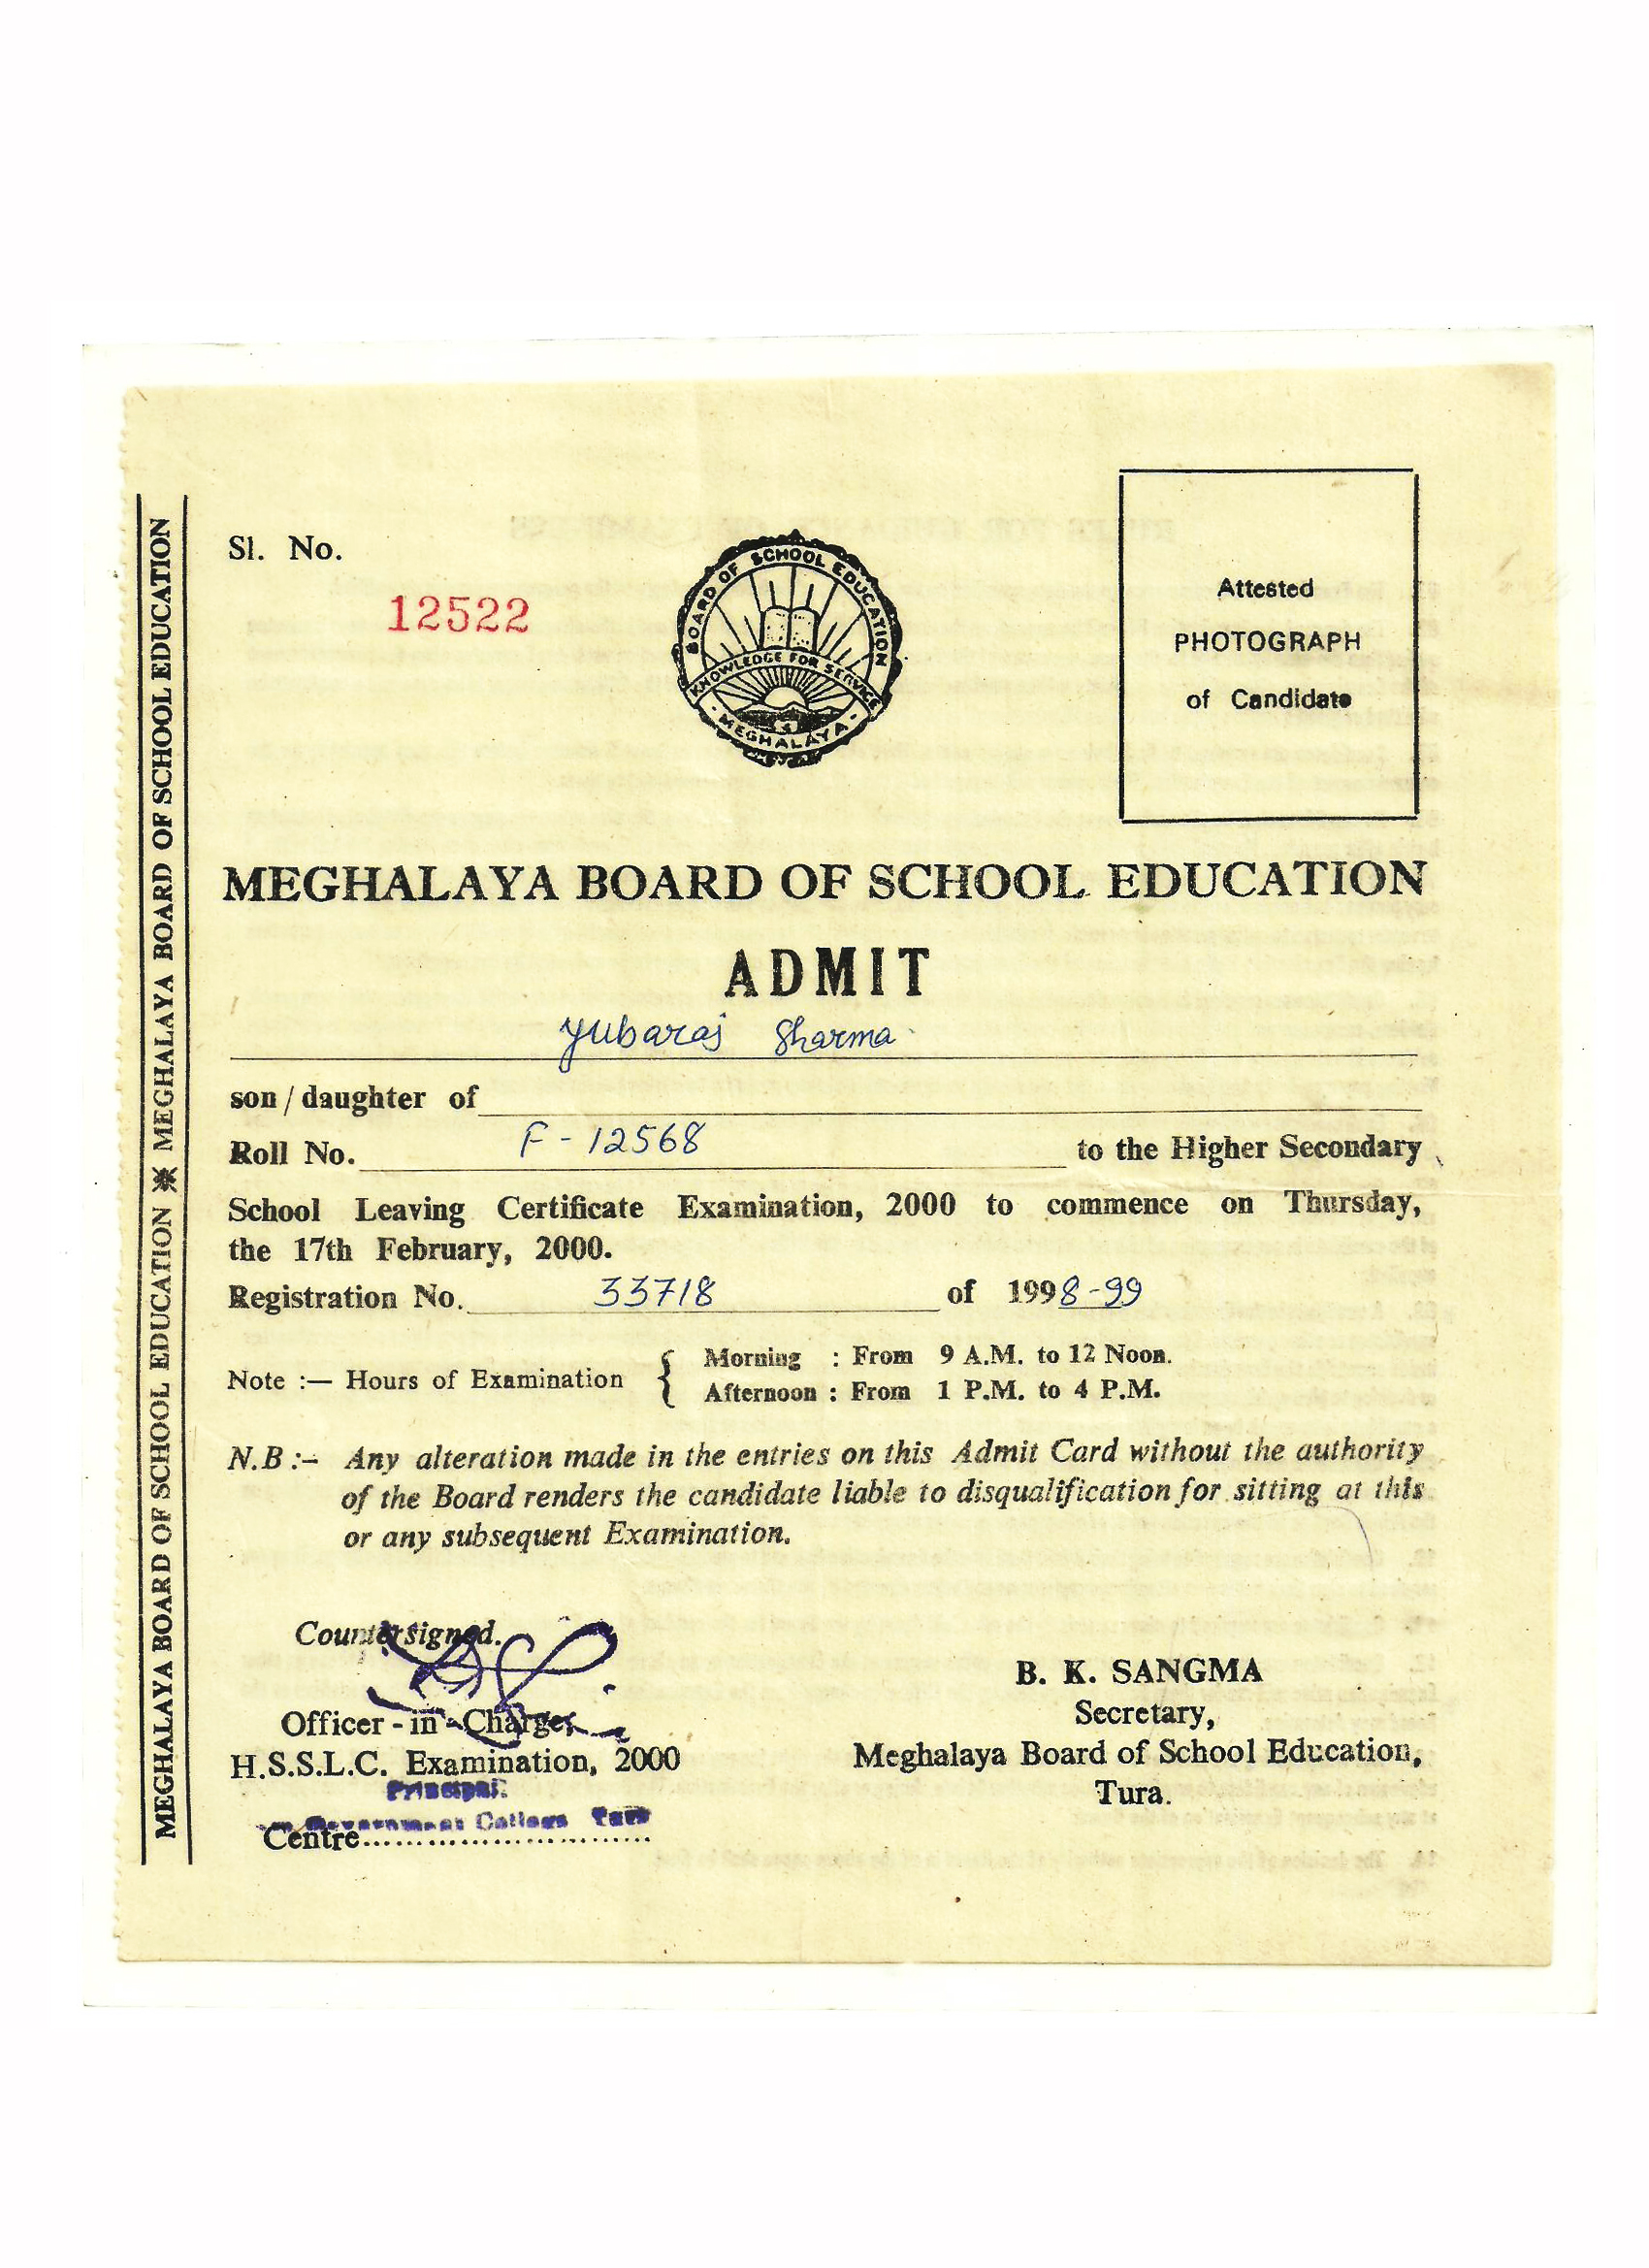 MEGHALAYA BOARD OF SCHOOL EDUCATION ※ MEGHALAYA BOARD OF SCHOOL EDUCATION
Sl. No.
12522
BOARD OF SCHOOL EDUCATION
KNOWLEDGE FOR SERVICE
MEGHALAYA
Attested
PHOTOGRAPH
of Candidate
MEGHALAYA BOARD OF SCHOOL EDUCATION
ADMIT
Yubaraj Sharma
son / daughter of
Roll No. F - 12568 to the Higher Secondary
School Leaving Certificate Examination, 2000 to commence on Thursday,
the 17th February, 2000.
Registration No. 33718 of 1998-99
Note :— Hours of Examination { Morning : From 9 A.M. to 12 Noon.
Afternoon : From 1 P.M. to 4 P.M.
N.B :– Any alteration made in the entries on this Admit Card without the authority
of the Board renders the candidate liable to disqualification for sitting at this
or any subsequent Examination.
Countersigned.
Officer - in - Charge,
H.S.S.L.C. Examination, 2000
Principal
Government College Tura
Centre..............................
B. K. SANGMA
Secretary,
Meghalaya Board of School Education,
Tura.